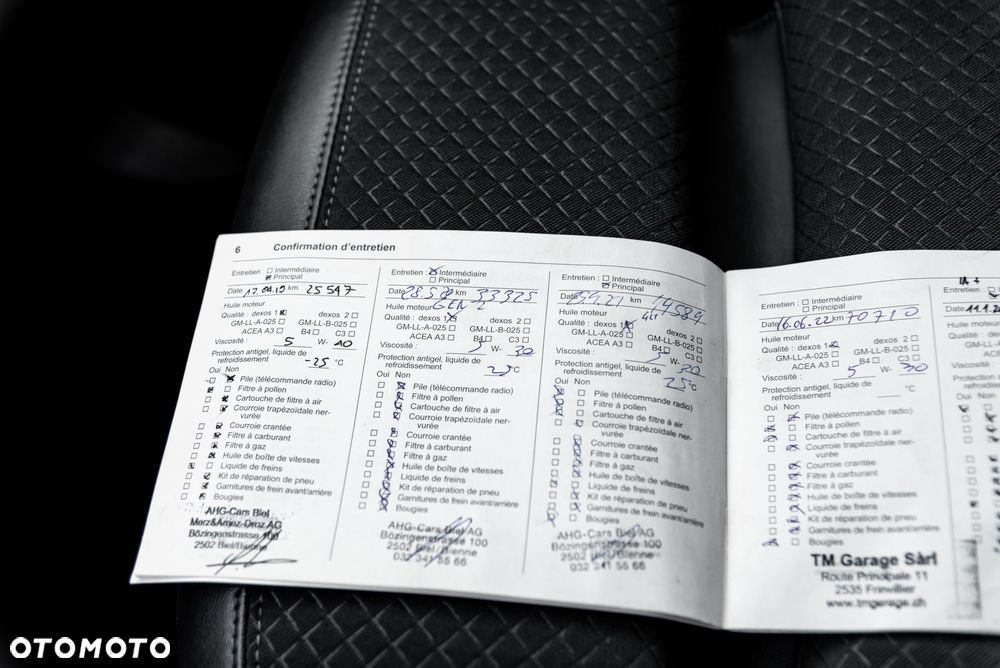 6 Confirmation d'entretien
Entretien : Intermédiaire
Principal
Date 17.04.19 km 25547
Huile moteur
Qualité : dexos 1 dexos 2
GM-LL-A-025 GM-LL-B-025
ACEA A3 B4 C3
Viscosité : 5 W- 40
Protection antigel, liquide de
refroidissement -25 °C
Oui Non
Pile (télécommande radio)
Filtre à pollen
Cartouche de filtre à air
Courroie trapézoïdale ner-
vurée
Courroie crantée
Filtre à carburant
Filtre à gaz
Huile de boîte de vitesses
Liquide de freins
Kit de réparation de pneu
Garnitures de frein avant/arrière
Bougies
AHG-Cars Biel
Merz&Amez-Droz AG
Bözingenstrasse 100
2502 Biel/Bienne
Entretien : Intermédiaire
Principal
Date km 33325
Huile moteur
Qualité : dexos 1 dexos 2
GM-LL-A-025 GM-LL-B-025
ACEA A3 B4 C3
Viscosité : 5 W- 30
Protection antigel, liquide de
refroidissement °C
Oui Non
Pile (télécommande radio)
Filtre à pollen
Cartouche de filtre à air
Courroie trapézoïdale ner-
vurée
Courroie crantée
Filtre à carburant
Filtre à gaz
Huile de boîte de vitesses
Liquide de freins
Kit de réparation de pneu
Garnitures de frein avant/arrière
Bougies
AHG-Cars Biel AG
Bözingenstrasse 100
2502 Biel/Bienne
032 341 55 66
Entretien : Intermédiaire
Principal
Date km
Huile moteur
Qualité : dexos 1 dexos 2
GM-LL-A-025 GM-LL-B-025
ACEA A3 B4 C3
Viscosité : 5 W- 30
Protection antigel, liquide de
refroidissement 25 °C
Oui Non
Pile (télécommande radio)
Filtre à pollen
Cartouche de filtre à air
Courroie trapézoïdale ner-
vurée
Courroie crantée
Filtre à carburant
Filtre à gaz
Huile de boîte de vitesses
Liquide de freins
Kit de réparation de pneu
Garnitures de frein avant/arrière
Bougies
AHG-Cars Biel AG
Bözingenstrasse 100
2502 Biel/Bienne
032 341 55 66
Entretien : Intermédiaire
Principal
Date 16.06.22 km 70710
Huile moteur
Qualité : dexos 1 dexos 2
GM-LL-A-025 GM-LL-B-025
ACEA A3 B4 C3
Viscosité : 5 W- 30
Protection antigel, liquide de
refroidissement °C
Oui Non
Pile (télécommande radio)
Filtre à pollen
Cartouche de filtre à air
Courroie trapézoïdale ner-
vurée
Courroie crantée
Filtre à carburant
Filtre à gaz
Huile de boîte de vitesses
Liquide de freins
Kit de réparation de pneu
Garnitures de frein avant/arrière
Bougies
TM Garage Sàrl
Route Principale 11
2535 Frinvillier
www.tmgarage.ch
Entretien :
Date
Huile moteur
Qualité :
Viscosité :
Oui Non
OTOMOTO